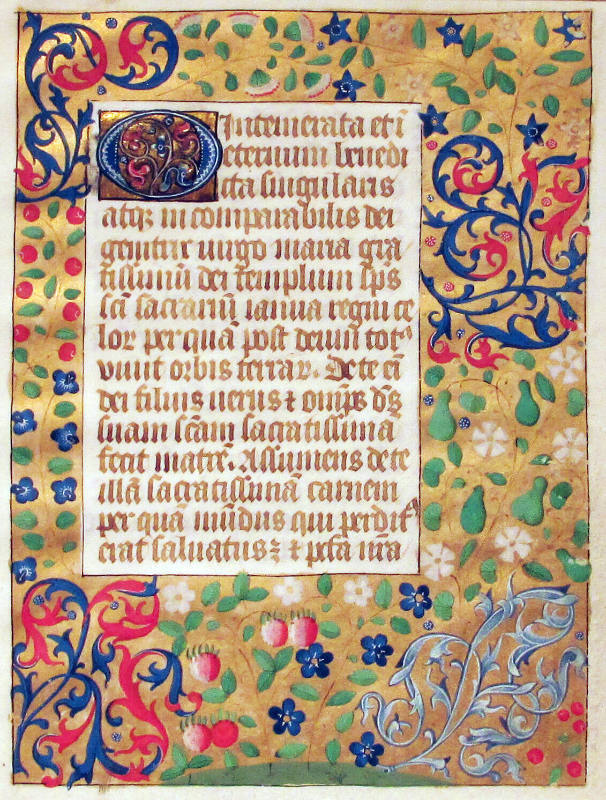 O Intemerata et ī
eternum benedi
cta singularis
atqꝫ incomparabilis dei
genitrix uirgo maria gra
tissimū dei templum sp̄s
sc̄i sacrariū ianua regni ce
lor per quā post deum totꝰ
viuit orbis terrarꝝ. De te eī
dei filius uerus ⁊ omp̄s dꝰs
suam sc̄am sacratissima
fecit matrē. Assumens de te
illā sacratissimā carnem
per quā mūdus qui perdit
erat saluatus: ⁊ p̄cta nr̄a